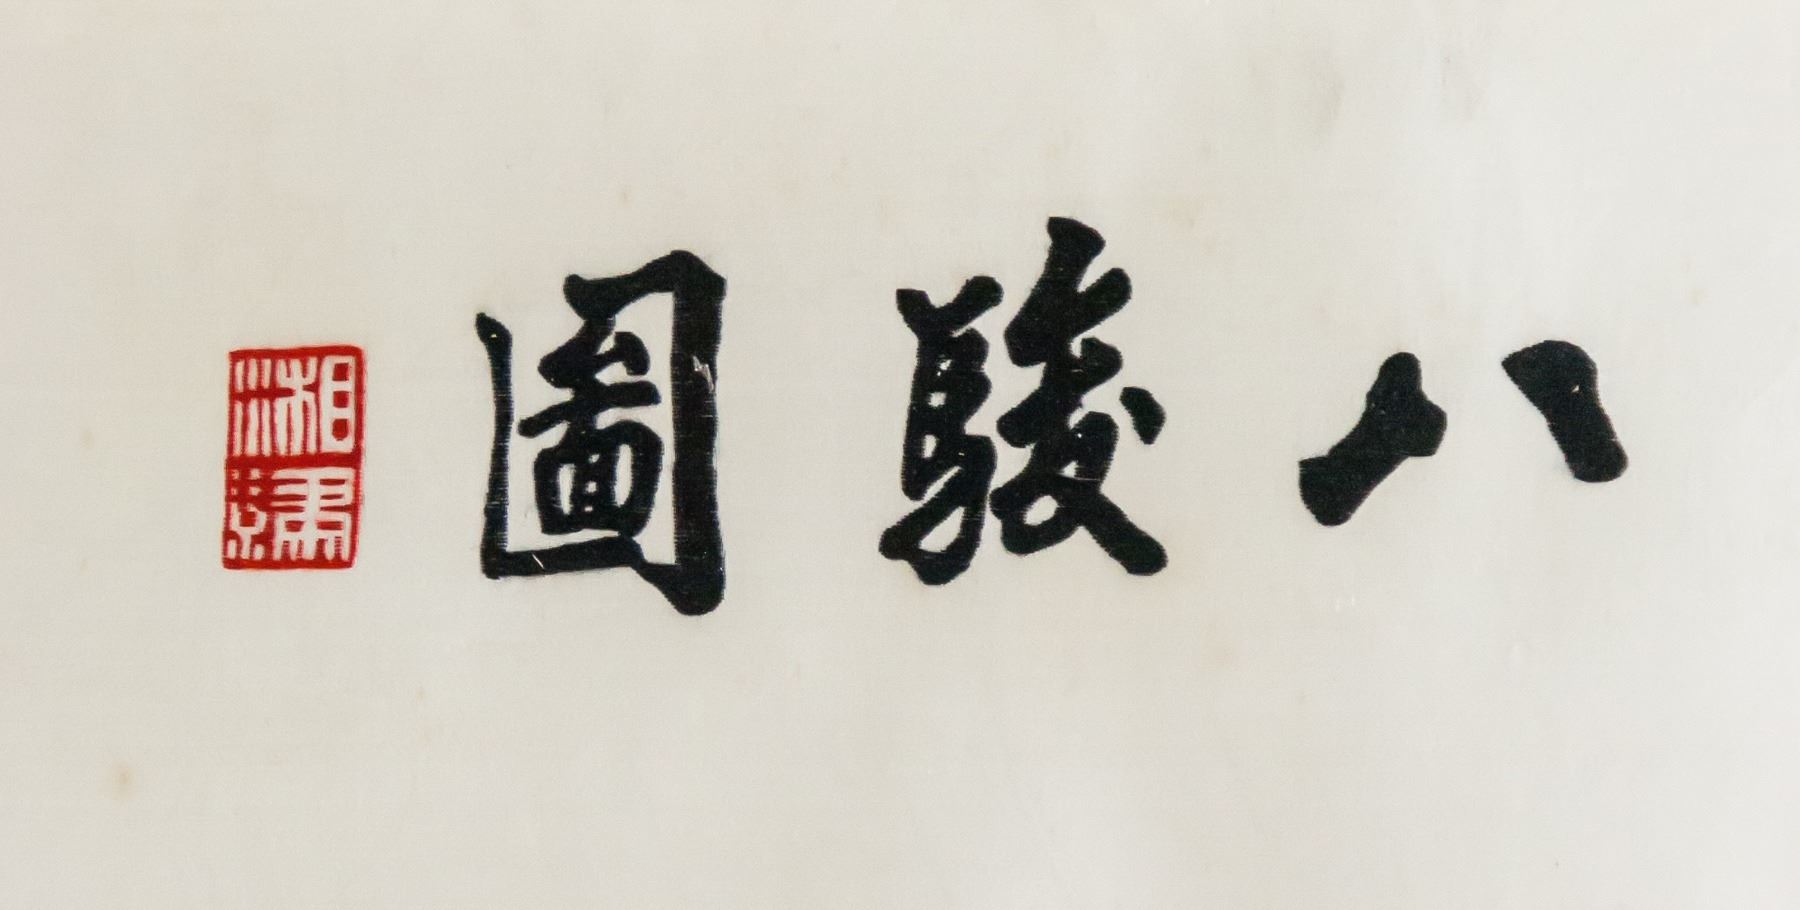 八駿圖
湘繡